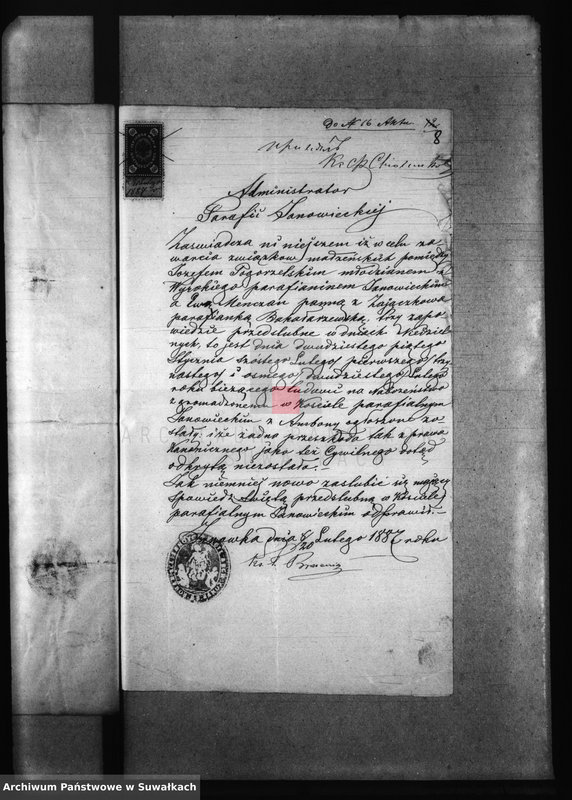 Do N 16 Aktu
8
Administrator
Parafii Janowieckiej
Zaświadcza ni niejszem iż w celu za
warcia związków madżeńskich pomiędzy
Jozefem Pogorzelskim młodzianem z
Wysokiego parafianinem Janowieckim
a Ewą Menczan panną z Zajączkowa
parafianką Bakałarzewską, trzy zapo
wiedzie przedślubne w dniach Niedziel
nych, to jest dnia dwudziestego piątego
Stycznia szostego Lutego, pierwszego, trzy
nastego i osmego, dwudziestego Lutego
roku bieżącego ludowi na Nabożeństwo
zgromadzonemu w Kościele parafialnym
Janowieckim z Ambony ogłoszone zo
stały; i że żadna przeszkoda tak z prawa
Kanonicznego jako też Cywilnego dotąd
odkrytą niezostała.
Jak niemniej nowo zaslubić się mający
Spowiedź Świętą przedślubną w Kościele
parafialnym Janowieckim odprawił.
Janówka dnia 8/20 Lutego 1887 roku
Ks. A.
ARC
Archiwum Państwowe w Suwałkach